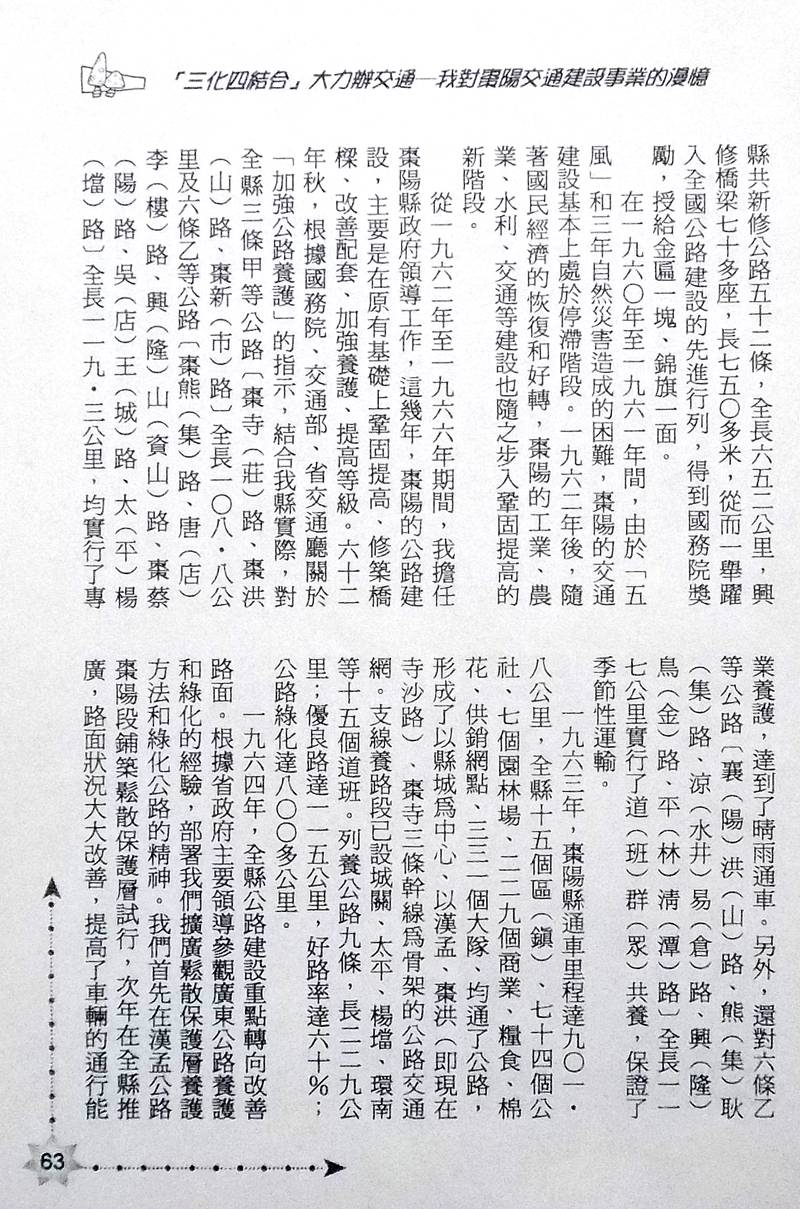 「三化四結合」大力辦交通─我對棗陽交通建設事業的漫憶
縣共新修公路五十二條，全長六五二公里，興
修橋梁七十多座，長七五〇多米，從而一舉躍
入全國公路建設的先進行列，得到國務院獎
勵，授給金匾一塊、錦旗一面。
在一九六〇年至一九六一年間，由於「五
風」和三年自然災害造成的困難，棗陽的交通
建設基本上處於停滯階段。一九六二年後，隨
著國民經濟的恢復和好轉，棗陽的工業、農
業、水利、交通等建設也隨之步入鞏固提高的
新階段。
從一九六二年至一九六六年期間，我擔任
棗陽縣政府領導工作，這幾年，棗陽的公路建
設，主要是在原有基礎上鞏固提高、修築橋
樑、改善配套、加強養護、提高等級。六十二
年秋，根據國務院、交通部、省交通廳關於
「加強公路養護」的指示，結合我縣實際，對
全縣三條甲等公路〔棗寺（莊）路、棗洪
（山）路、棗新（市）路〕全長一〇八·八公
里及六條乙等公路〔棗熊（集）路、唐（店）
李（樓）路、興（隆）山（資山）路、棗蔡
（陽）路、吳（店）王（城）路、太（平）楊
（壋）路〕全長一一九·三公里，均實行了專
業養護，達到了晴雨通車。另外，還對六條乙
等公路〔襄（陽）洪（山）路、熊（集）耿
（集）路、涼（水井）易（倉）路、興（隆）
鳥（金）路、平（林）清（潭）路〕全長一一
七公里實行了道（班）群（眾）共養，保證了
季節性運輸。
一九六三年，棗陽縣通車里程達九〇一·
八公里，全縣十五個區（鎮）、七十四個公
社、七個園林場、二二九個商業、糧食、棉
花、供銷網點、三三一個大隊、均通了公路，
形成了以縣城爲中心、以漢孟、棗洪（即現在
寺沙路）、棗寺三條幹線爲骨架的公路交通
網。支線養路段已設城關、太平、楊壋、環南
等十五個道班。列養公路九條，長二二九公
里；優良路達一一五公里，好路率達六十%；
公路綠化達八〇〇多公里。
一九六四年，全縣公路建設重點轉向改善
路面。根據省政府主要領導參觀廣東公路養護
和綠化的經驗，部署我們擴廣鬆散保護層養護
方法和綠化公路的精神。我們首先在漢孟公路
棗陽段鋪築鬆散保護層試行，次年在全縣推
廣，路面狀況大大改善，提高了車輛的通行能
63